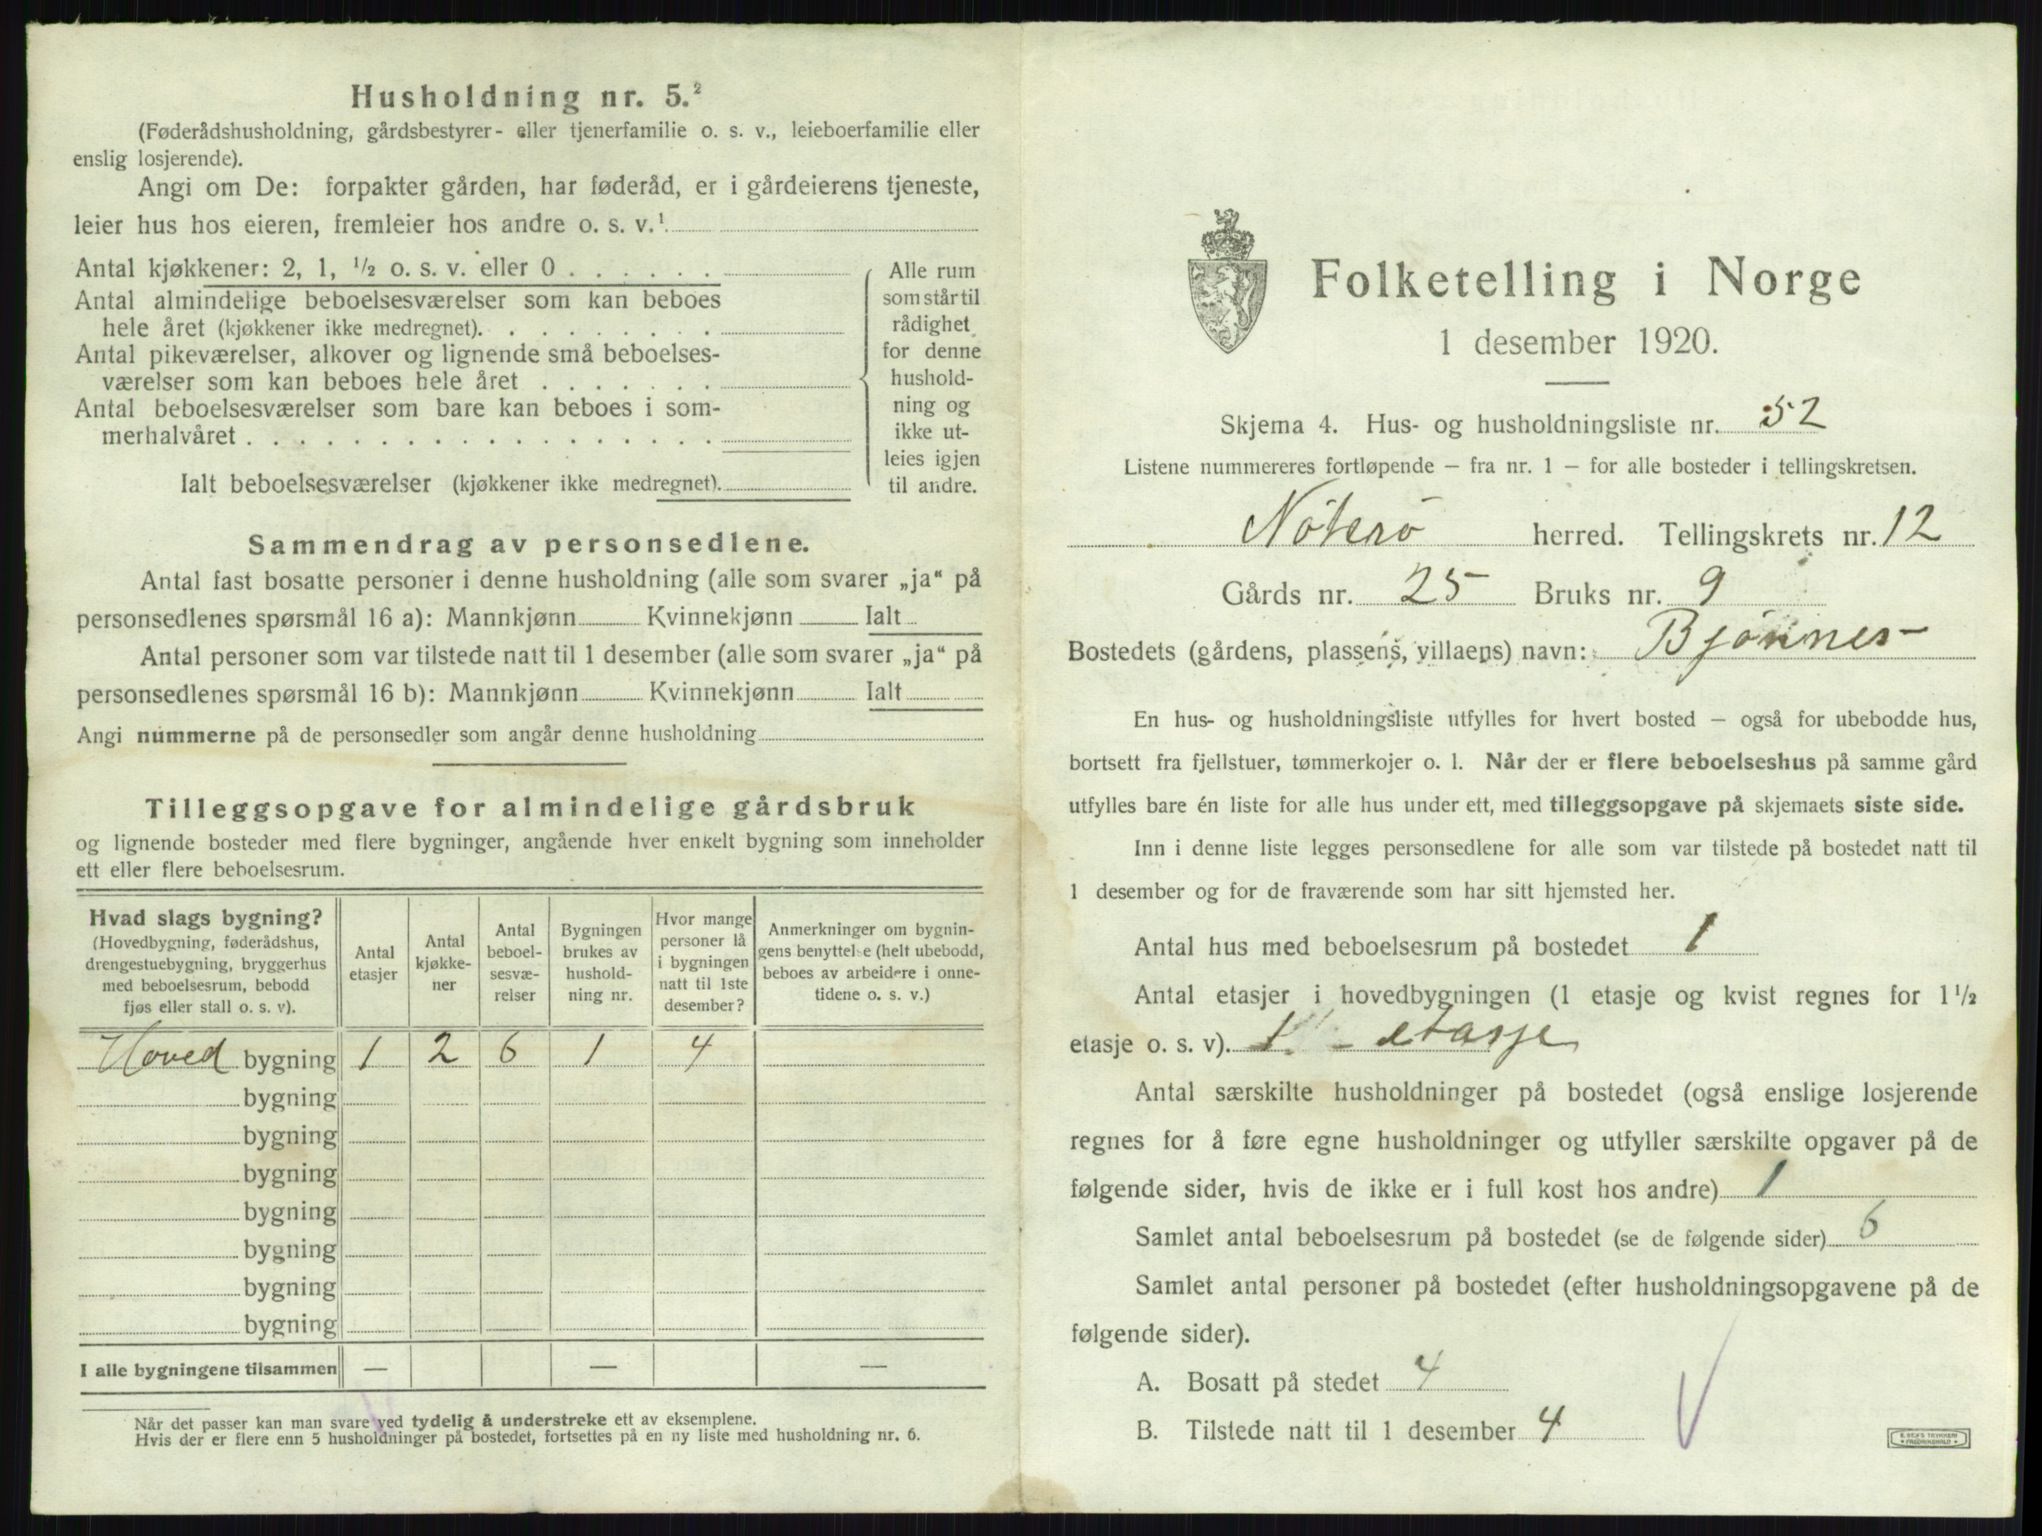 Husholdning nr. 5.²
(Føderådshusholdning, gårdsbestyrer- eller tjenerfamilie o. s. v., leieboerfamilie eller
enslig losjerende).
Angi om De: forpakter gården, har føderåd, er i gårdeierens tjeneste,
leier hus hos eieren, fremleier hos andre o. s. v.¹
Antal kjøkkener: 2, 1, ½ o. s. v. eller 0 . . . . . .
Antal almindelige beboelsesværelser som kan beboes
hele året (kjøkkener ikke medregnet). . . . . . . . .
Antal pikeværelser, alkover og lignende små beboelses-
værelser som kan beboes hele året . . . . . . .
Antal beboelsesværelser som bare kan beboes i som-
merhalvåret . . . . . . . . . . . . . . . . . .
Ialt beboelsesværelser (kjøkkener ikke medregnet).
Alle rum
som står til
rådighet
for denne
hushold-
ning og
ikke ut-
leies igjen
til andre.
Sammendrag av personsedlene.
Antal fast bosatte personer i denne husholdning (alle som svarer „ja“ på
personsedlenes spørsmål 16 a): Mannkjønn Kvinnekjønn Ialt
Antal personer som var tilstede natt til 1 desember (alle som svarer „ja“ på
personsedlenes spørsmål 16 b): Mannkjønn Kvinnekjønn Ialt
Angi nummerne på de personsedler som angår denne husholdning
Tilleggsopgave for almindelige gårdsbruk
og lignende bosteder med flere bygninger, angående hver enkelt bygning som inneholder
ett eller flere beboelsesrum.
Hvad slags bygning?
(Hovedbygning, føderådshus,
drengestuebygning, bryggerhus
med beboelsesrum, bebodd
fjøs eller stall o. s. v).
Antal
etasjer
Antal
kjøkke-
ner
Antal
beboel-
sesvæ-
relser
Bygningen
brukes av
hushold-
ning nr.
Hvor mange
personer lå
i bygningen
natt til 1ste
desember?
Anmerkninger om bygnin-
gens benyttelse (helt ubebodd,
beboes av arbeidere i onne-
tidene o. s. v.)
Hoved bygning 1 2 6 1 4
bygning
bygning
bygning
bygning
bygning
bygning
bygning
I alle bygningene tilsammen — — —
Når det passer kan man svare ved tydelig å understreke ett av eksemplene.
Hvis der er flere enn 5 husholdninger på bostedet, fortsettes på en ny liste med husholdning nr. 6.
Folketelling i Norge
1 desember 1920.
Skjema 4. Hus- og husholdningsliste nr. 52
Listene nummereres fortløpende – fra nr. 1 – for alle bosteder i tellingskretsen.
Nöterö herred. Tellingskrets nr. 12
Gårds nr. 25 Bruks nr. 9
Bostedets (gårdens, plassens, villaens) navn: Bjönnes
En hus- og husholdningsliste utfylles for hvert bosted – også for ubebodde hus,
bortsett fra fjellstuer, tømmerkojer o. l. Når der er flere beboelseshus på samme gård
utfylles bare én liste for alle hus under ett, med tilleggsopgave på skjemaets siste side.
Inn i denne liste legges personsedlene for alle som var tilstede på bostedet natt til
1 desember og for de fraværende som har sitt hjemsted her.
Antal hus med beboelsesrum på bostedet 1
Antal etasjer i hovedbygningen (1 etasje og kvist regnes for 1½
etasje o. s. v). 1 etasje
Antal særskilte husholdninger på bostedet (også enslige losjerende
regnes for å føre egne husholdninger og utfyller særskilte opgaver på de
følgende sider, hvis de ikke er i full kost hos andre) 1
Samlet antal beboelsesrum på bostedet (se de følgende sider) 6
Samlet antal personer på bostedet (efter husholdningsopgavene på de
følgende sider).
A. Bosatt på stedet 4
B. Tilstede natt til 1 desember 4